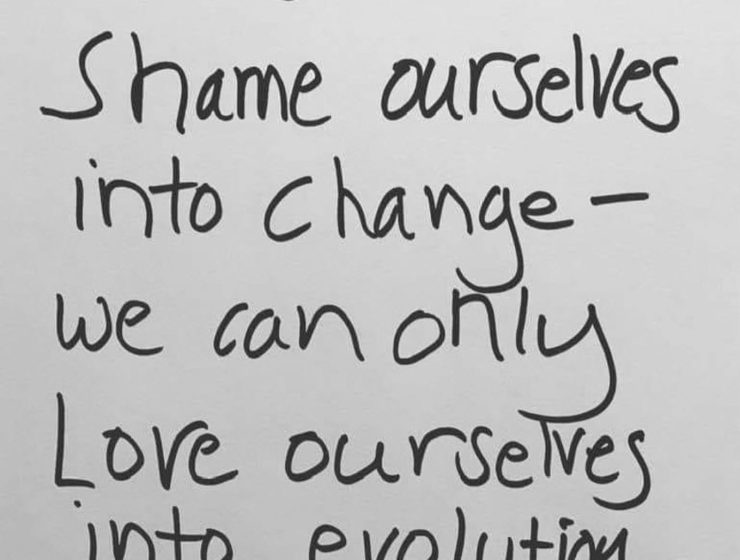 Shame ourselves
into change -
we can only
Love ourselves
into evolution